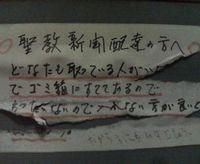 聖教新聞配達の方へ
どなたも取っている人がい
でゴミ箱にすててあるので
もったいないので入れない方が良い